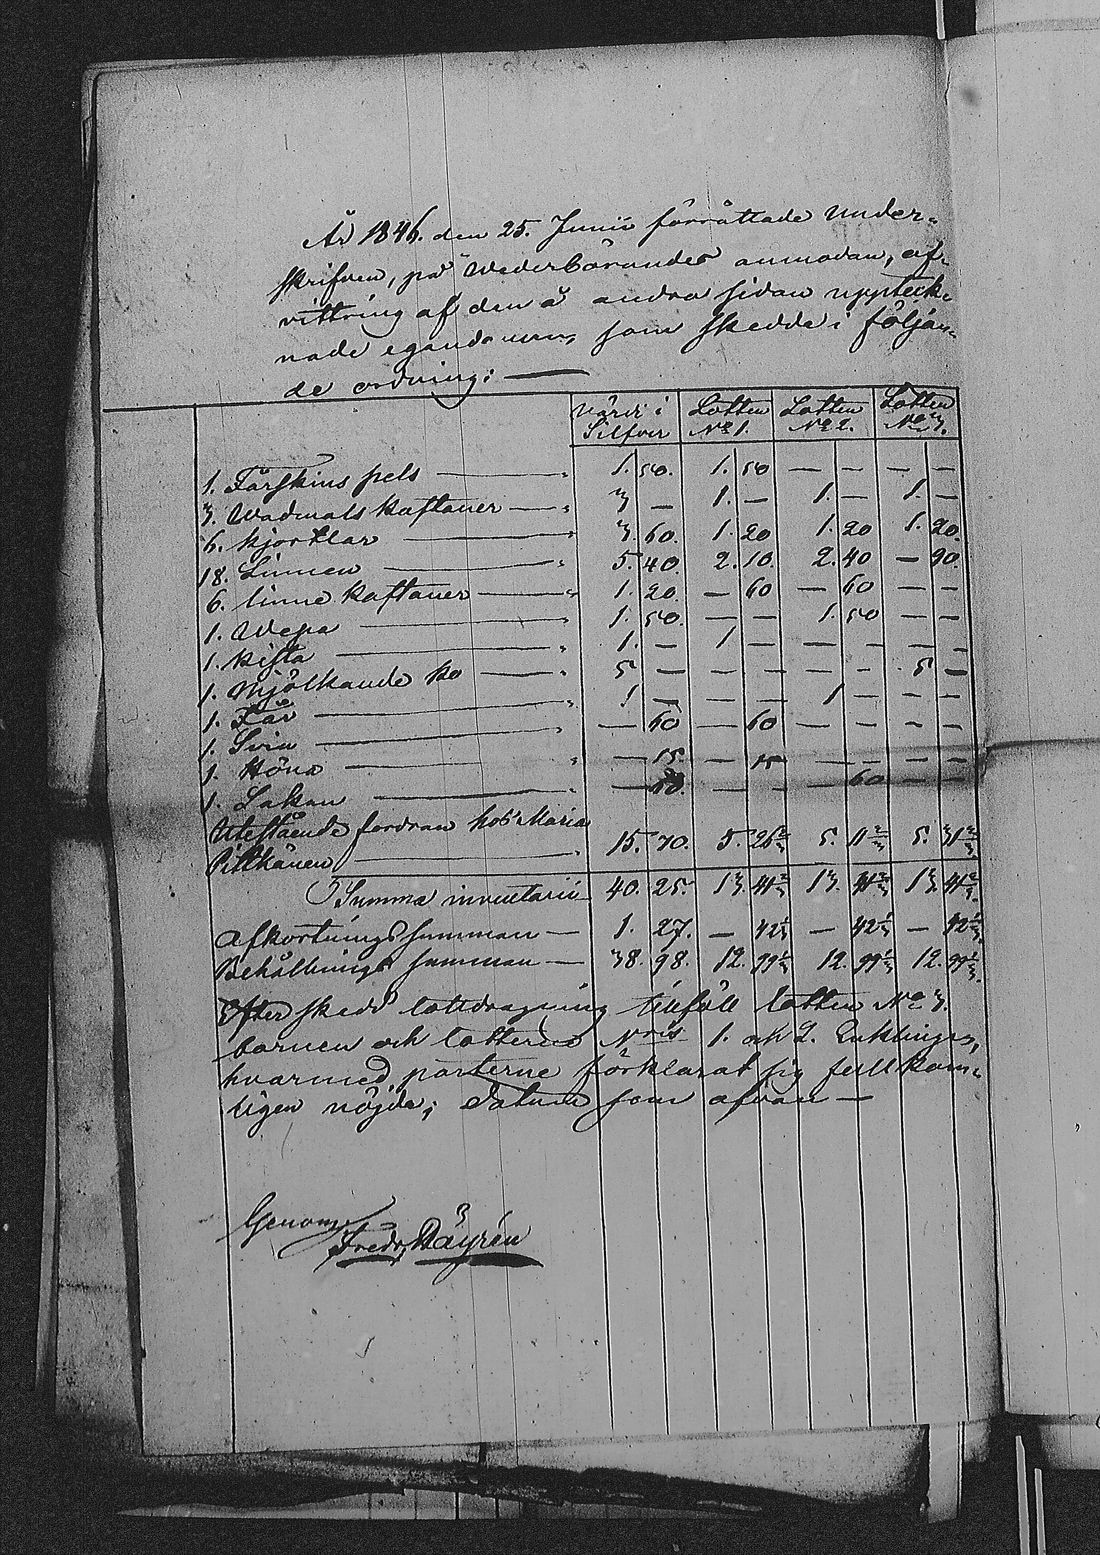 År 1846. den 25. Junii förrättade under-
skrifven, på Wederbörandes anmodan, af-
vittring af den å andra sidan uppteck-
nade egendomen, som skedde i följan-
de ordning: —
Värde i Silfver Lotten No 1. Lotten No 2. Lotten No 3.
1. Fårskins pels — 1. 50. 1. 50 — — — —
3. Wadmals kaftaner — 3 — 1. — 1. — 1. —
6. kjortlar — 3. 60. 1. 20 1. 20 1. 20.
18. Linnen — 5. 40. 2. 10. 2. 40 — 90.
6. linne kaftaner — 1. 20. — 60 — 60 — —
1. Wepa — 1. 50. — — 1. 50 — —
1. kista — 1. — 1 — — — — —
1. Mjölkande ko — 5 — — — — — 5 —
1. Får — 1 — — — 1 — — —
1. Svin — — 60 — 60 — — — —
1. Höna — — 15. — 15 — — — —
1. Lakan — — 60. — — — 60 — —
Utestående fordran hos Maria
Pitkänen — 15. 70. 5. 26 2/3 5. 11 2/3 5. 31 2/3
Summa inventarii 40. 25. 13. 41 2/3 13. 41 2/3 13. 41 2/3.
Afkortnings summan — 1. 27. — 42 1/3 — 42 1/3 — 42 1/3.
Behållnings summan — 38. 98. 12. 99 1/3 12. 99 1/3 12. 99 1/3.
Efter skedd lottdragning tillföll lotten No 3.
barnen och lotterne Nris 1. och 2. Enklingen,
hvarmed parterne förklarat sig fullkom-
ligen nöjde; datum som ofvan —
Genom
Fredr. Däyrén